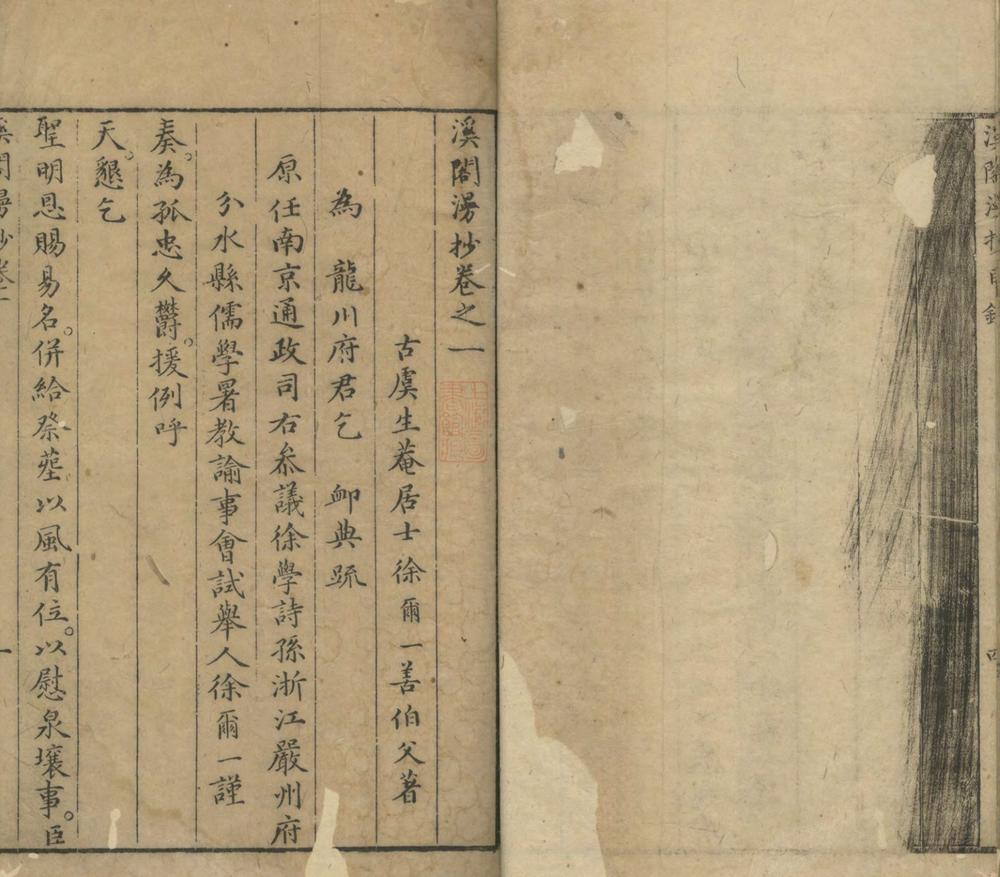 溪閣漫抄目錄
四
溪閣漫抄卷之一
古虞生菴居士徐爾一善伯父著
為 龍川府君乞 卹典疏
原任南京通政司右叅議徐學詩孫浙江嚴州府
分水縣儒學署教諭事會試舉人徐爾一謹
奏。為孤忠久欝。援例呼
天。懇乞
聖明恩賜易名。併給祭塟以風有位。以慰泉壤事。臣
溪閣漫抄卷一
一